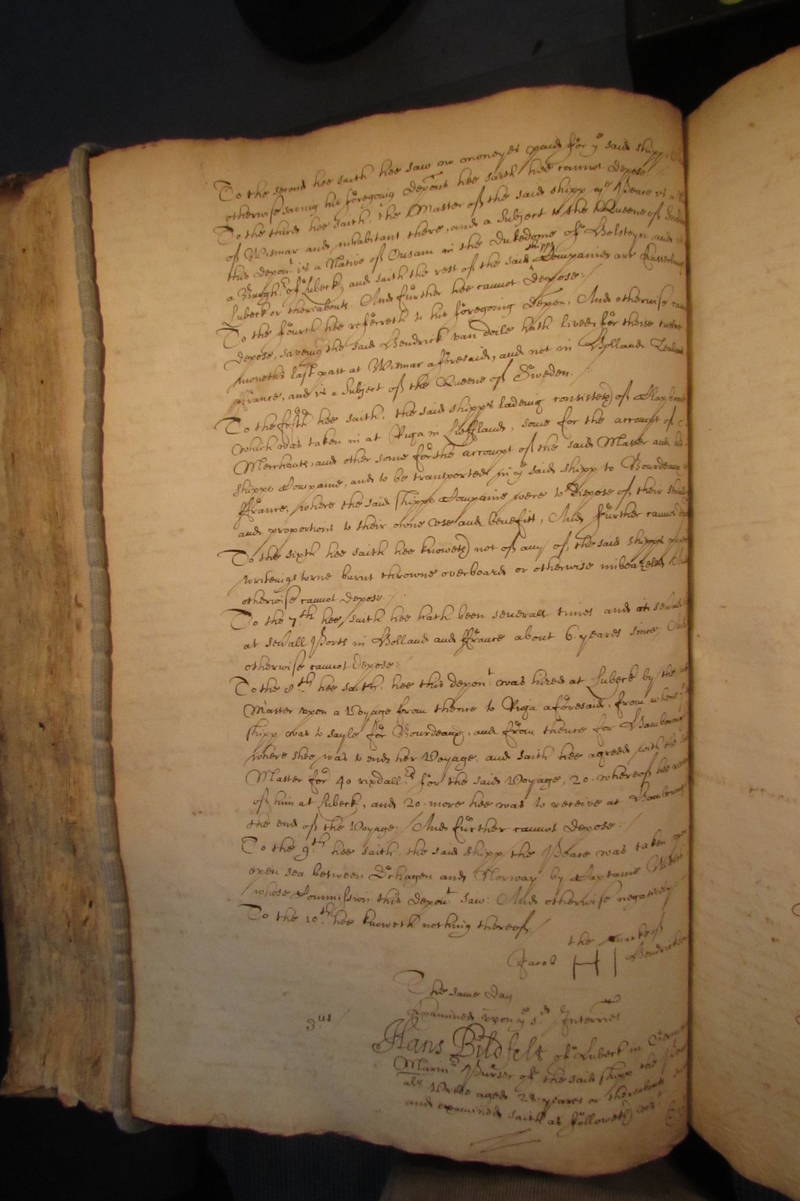 To the second hee saith hee saw no moneyes paid for ye said shipp
otherwise saving his foregoing depont hee saith hee cannot depose
To the third hee saith, the Master of the said shipp ye Peace is a
of Wismar and inhabitant there, and a Subject to the Queene of Sweden
this depont is a Native of Ousam in the Dukedome of Holsteyn, and
a Burghr of Lubeck, and saith the rest of the said shipps Companie are
Lubeck or thereabouts. And further hee cannot depose.
To the fourth hee referreth to his foregoing depon, And otherwise
depose, saving the said Hendrick van Deile hath lived for these
moneths last past at Wismar aforesaid, and not in Holland Zealand
France, and is a Subject of the Queene of Sweden.
To the fifth hee saith, the said shipps ladeing consisteth of
which was taken in at Riga in Liffland, some for the accompt of
Merchants, and other some for the accompt of the said Master and his
shipps Companie, and to be transported in ye said shipp to Bourdeaux
France, where the said shipps Companie were to dispose of their
and proportions to their owne use and benefitt, And further cannot
To the sixth hee saith hee knoweth not of any of the said shipps
writeings torne burnt throwne overboard or otherwise
otherwise cannot depose.
To the 7th hee saith hee hath been severall times and
at severall Ports in Holland and France about 6 yeares since
otherwise cannot depose.
To the 8th hee saith hee this depont was hired at Lubeck by the
Master upon a Voyage from thence to Riga aforesaid, from whence
shipp was to sayle for Bourdeaux, and from thence for Hambourg
where shee was to end her Voyage, and saith hee agreed with the
Master for 40 rixdallrs for the said Voyage, 20 whereof hee
of him at Lubeck, and 20 more hee was to receive at Hambourg
the end of the Voyage. And further cannot depose.
To the 9th hee saith, the said shipp the Peace was taken
open sea between Schagen and Norway by Captaine
whose Commission this depont saw. And otherwise negatively
To the 10th hee knoweth nothing thereof.
the marke of
Jacob H I Hendricks
The same day
Examined upon ye sd Interries
3us
Hans Bildfelt of Lubeck in
Marinr Purser of the said shipp the
aged 28 yeares or thereabouts
and examined saith as followeth